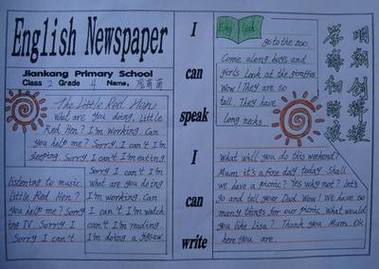 English Newspaper
Jiankang Primary School
Class 2 Grade 4 Name:
The Little Red Hen
What are you doing, Little
Red Hen? I'm working. Can
you help me? Sorry I can't I'm
sleeping Sorry I can't I'm eating.
Sorry I can't I'm
listening to music.
What are you doing
Little Red Hen?
I'm working. Can
you help me? Sorry
I can't I'm watch
ing TV. Sorry I
can't I'm reading
Sorry I can't
I'm doing a jigsaw.
I
can
speak
I
can
write
Eng lish
go to the zoo.
Come along boys and
girls Look at the giraffes
Wow! They are so
tall. They have
long necks.
What will you do this weekend?
Mum it's a fine day today Shall
we have a picnic? Yes why not? Let's
go and tell your Dad. Wow! We have so
many things for our picnic What would
you like Lisa? Thank you Mum. OK
here you are.